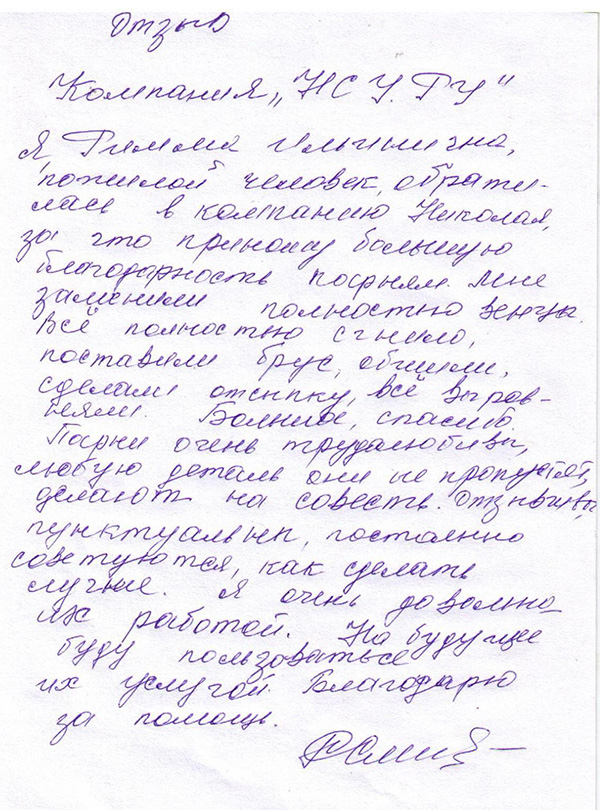 Отзыв
Компания „НСУ.РУ"
Я, Римма Ильинична,
пожилой человек, обрати-
лась в компанию Николая,
за что приношу большую
благодарность парням. Мне
заменили полностью венцы.
Всё полностью сгнило,
поставили брус, обшили,
сделали отсыпку, всё выров-
няли. Большое, спасибо.
Парни очень трудалюбивы,
любую деталь они не пропустят,
делают на совесть. Отзывчивы,
пунктуальны, постоянно
советуются, как сделать
лучше. Я очень довольна
их работой. На будущее
буду пользоваться
их услугой. Благодарю
за помощь.